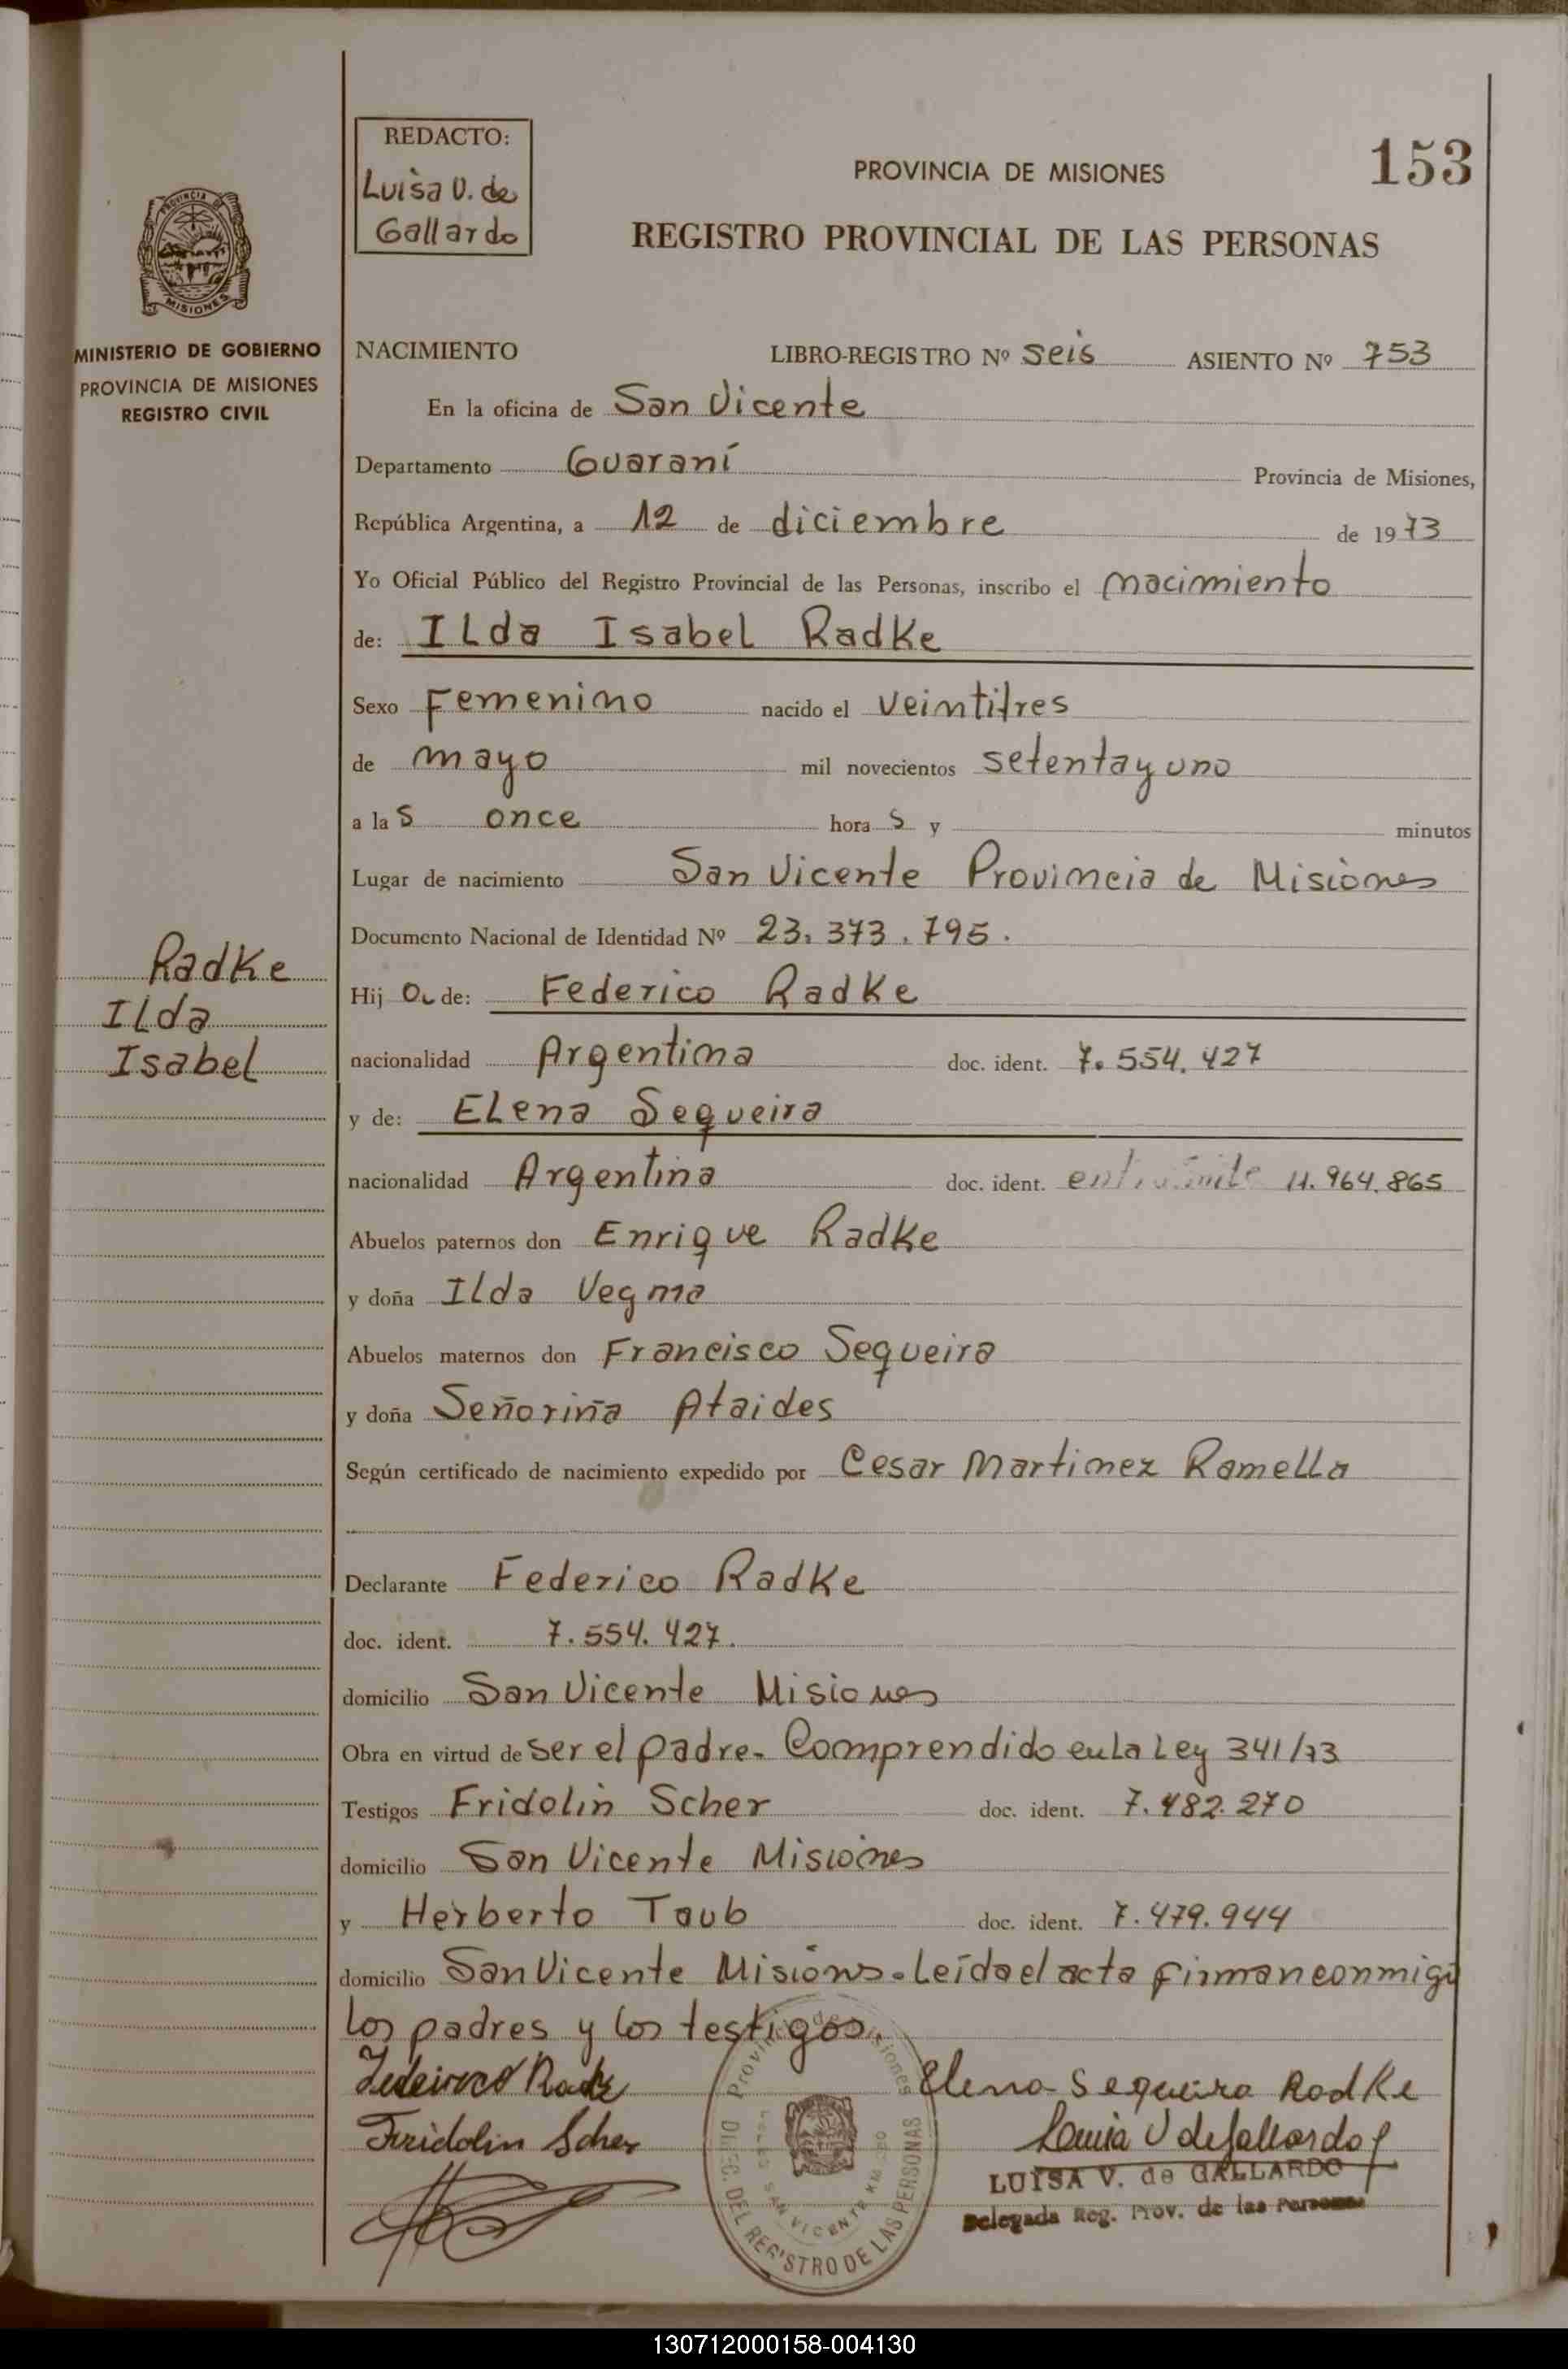 REDACTO:
Luisa V. de
Gallardo
PROVINCIA DE MISIONES
153
REGISTRO PROVINCIAL DE LAS PERSONAS
PROVINCIA DE
MISIONES
MINISTERIO DE GOBIERNO
PROVINCIA DE MISIONES
REGISTRO CIVIL
NACIMIENTO LIBRO-REGISTRO Nº Seis ASIENTO Nº 753
En la oficina de San Vicente
Departamento Guaraní Provincia de Misiones,
República Argentina, a 12 de diciembre de 1973
Yo Oficial Público del Registro Provincial de las Personas, inscribo el nacimiento
de: ILda Isabel Radke
Sexo Femenino nacido el Veintitres
de mayo mil novecientos setenta y uno
a las once horas y minutos
Lugar de nacimiento San Vicente Provincia de Misiones
Documento Nacional de Identidad Nº 23.373.795.
Radke
Ilda
Isabel
Hija de: Federico Radke
nacionalidad Argentina doc. ident. 7.554.427
y de: ELena Sequeira
nacionalidad Argentina doc. ident. en trámite 11.964.865
Abuelos paternos don Enrique Radke
y doña Ilda Vegma
Abuelos maternos don Francisco Sequeira
y doña Señoriña Ataides
Según certificado de nacimiento expedido por Cesar Martinez Ramella
Declarante Federico Radke
doc. ident. 7.554.427.
domicilio San Vicente Misiones
Obra en virtud de ser el padre. Comprendido en La Ley 341/73
Testigos Fridolin Scher doc. ident. 7.482.270
domicilio San Vicente Misiones
y Herberto Taub doc. ident. 7.479.944
domicilio San Vicente Misions. Leída el acta firman conmigo
los padres y los testigos.
Federico Radke
Elena Sequeira Radke
Fridolin Scher
Luisa V de Gallardo
LUISA V. de GALLARDO
Delegada Reg. Prov. de las Personas
Provincia de Misiones
DIREC. DEL REGISTRO DE LAS PERSONAS
SAN VICENTE
130712000158-004130